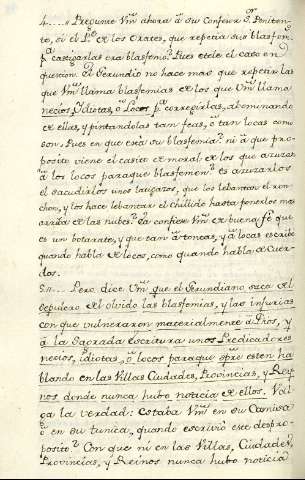 4.... Pregunte Vm̃ ahora à su Confesor S.ʳ Peniten-
te, si el P.ᵉ de los Orates, que repetia sus blasfem.ˢ
p.ᵃ castigarlas era blasfemo? Pues este es el caso en
question. El Gerundio no hace mas que repetir las
que Vm̃ llama blasfemias de los que Vm̃ llama
necios, Idiotas, ò Locos p.ᵃ corregirlas, abominando
de ellas, y pintandolas tan feas, ò tan locas como
son. Pues en que està su blasfemia? ni à que pro-
posito viene el casito de moral de los que azuzan
à los locos paraque blasfemen? es azuzarlos
el sacudirlos unos latigazos, que los lebantan el ron-
chon, y los hace lebantar el chillido hasta ponerlos mas
arriba de las nubes? Ea confiese Vm̃ de buena fe que
es un botarate, y que tan à tontas, y à locas escribe
quando habla de locos, como quando habla de Cuer-
dos.
5.... Pero dice Vm̃ que el Gerundiano saca del
sepulcro del olvido las blasfemias, y las injurias
con que vulneraron materialmente à Dios, y
à la Sagrada Escritura unos Predicadores
necios, idiotas, ò locos paraque spre esten ha-
blando en las Villas Ciudades, Provincias, y Rey-
nos donde nunca hubo noticia de ellos. Val-
ga la verdad: Estaba Vm̃ en su Camisa
ò en su tunica, quando escriviò ese despro-
posito? Con que ni en las Villas, Ciudades,
Provincias, y Reinos nunca hubo noticia